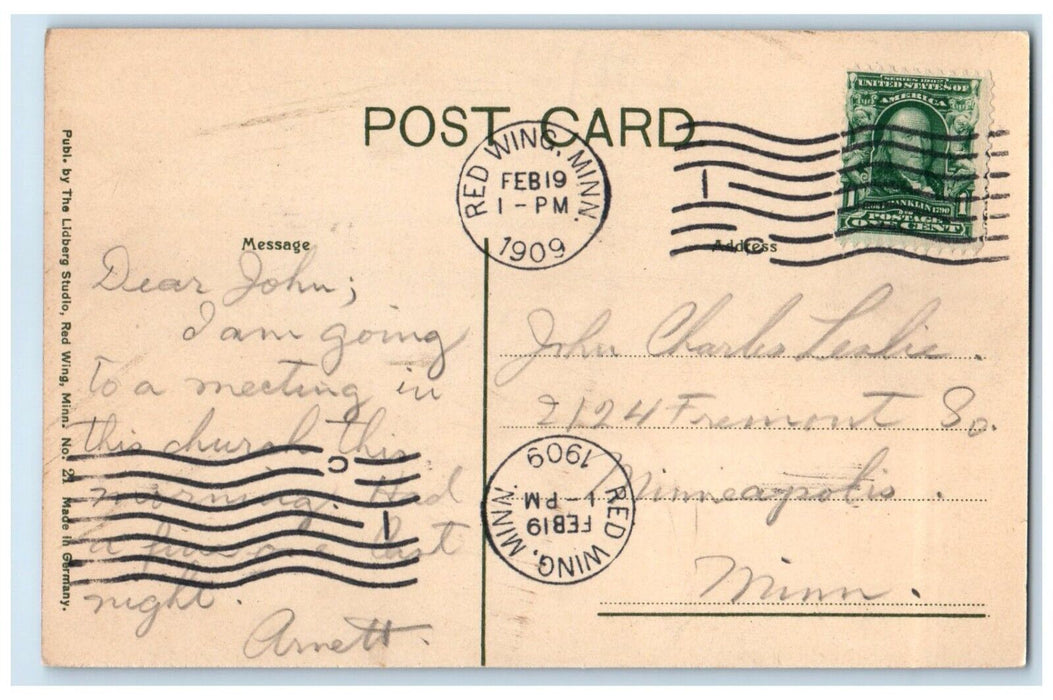 POST CARD
SERIES 1902
UNITED STATES OF
AMERICA
FRANKLIN 1790
POSTAGE
ONE CENT
RED WING, MINN.
FEB 19
1 - PM
1909
1
C
Message
Dear John;
I am going
to a meeting in
this church this
morning. Had
a fine one last
night.
Arnett.
Address
John Charles Leslie.
2124 Fremont So.
Minneapolis.
Minn.
RED WING, MINN.
FEB 19
1 - PM
1909
1
C
Publ. by The Lidberg Studio, Red Wing, Minn. No. 21 Made in Germany.